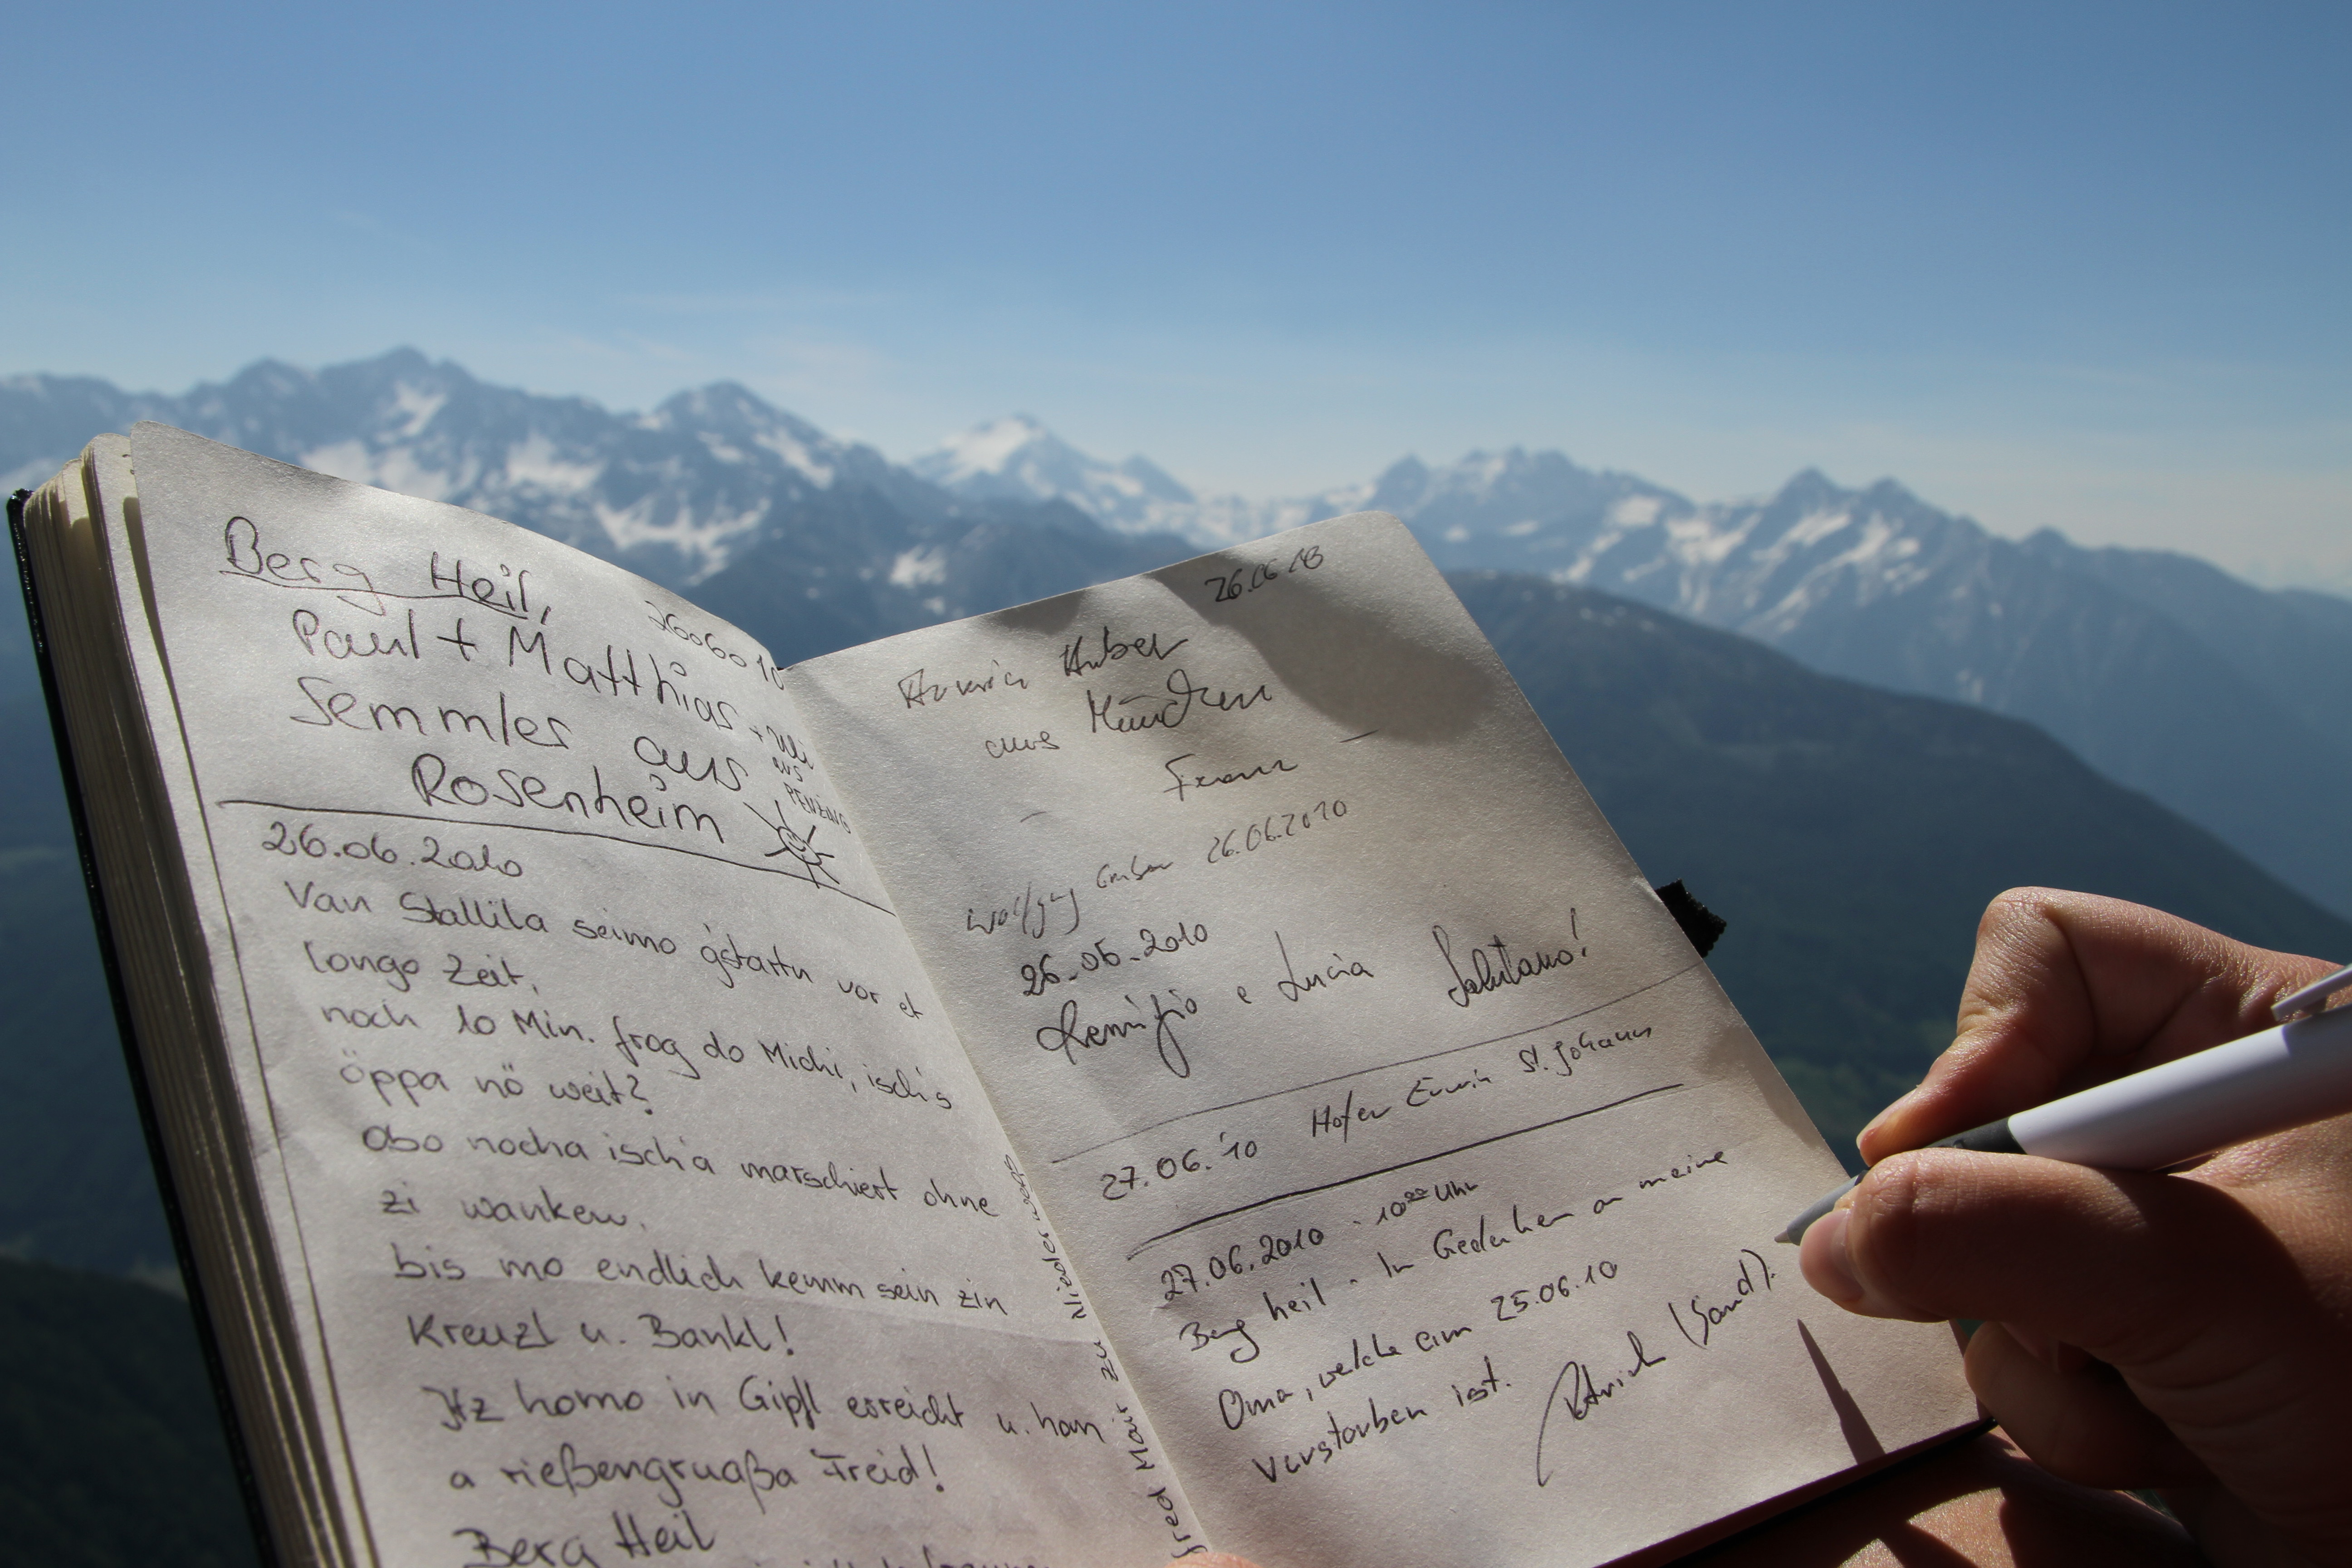 Berg Heil,
26.06.10
Paul + Matthias
Semmler aus
Rosenheim
26.06.2010
Van Stallila seimo g'startn vor et
longo Zeit,
noch 10 Min. frog do Michi, isch's
öppa nö weit?
Obo nocha isch'a marschiert ohne
zi wanken,
bis mo endlich kemm sein zin
Kreuzl u. Bankl!
Itz homo in Gipfl erreicht u. hon
a rießengruaßa Freid!
Berg Heil
Mair zu Niederwegs
26.06.10
Huber
aus München
26.06.2010
26.06.2010
Remigio e Lucia Salutano!
27.06.'10 Hofer Erwin St. Johann
27.06.2010 - 10⁰⁰ Uhr
Berg heil - In Gedenken an meine
Oma, welche am 25.06.10
verstorben ist.
Patrick (Sand).